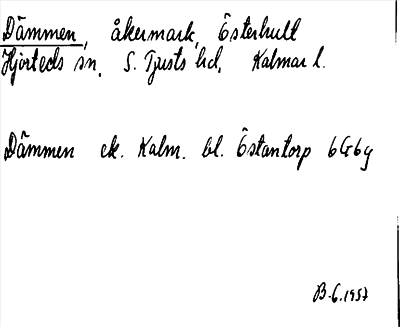 Dämmen, åkermark, Österhult
Hjorteds sn. S. Tjusts hd, Kalmar l.
Dämmen ek. Kalm. bl. Östantorp 6G6g
B. 6. 1957